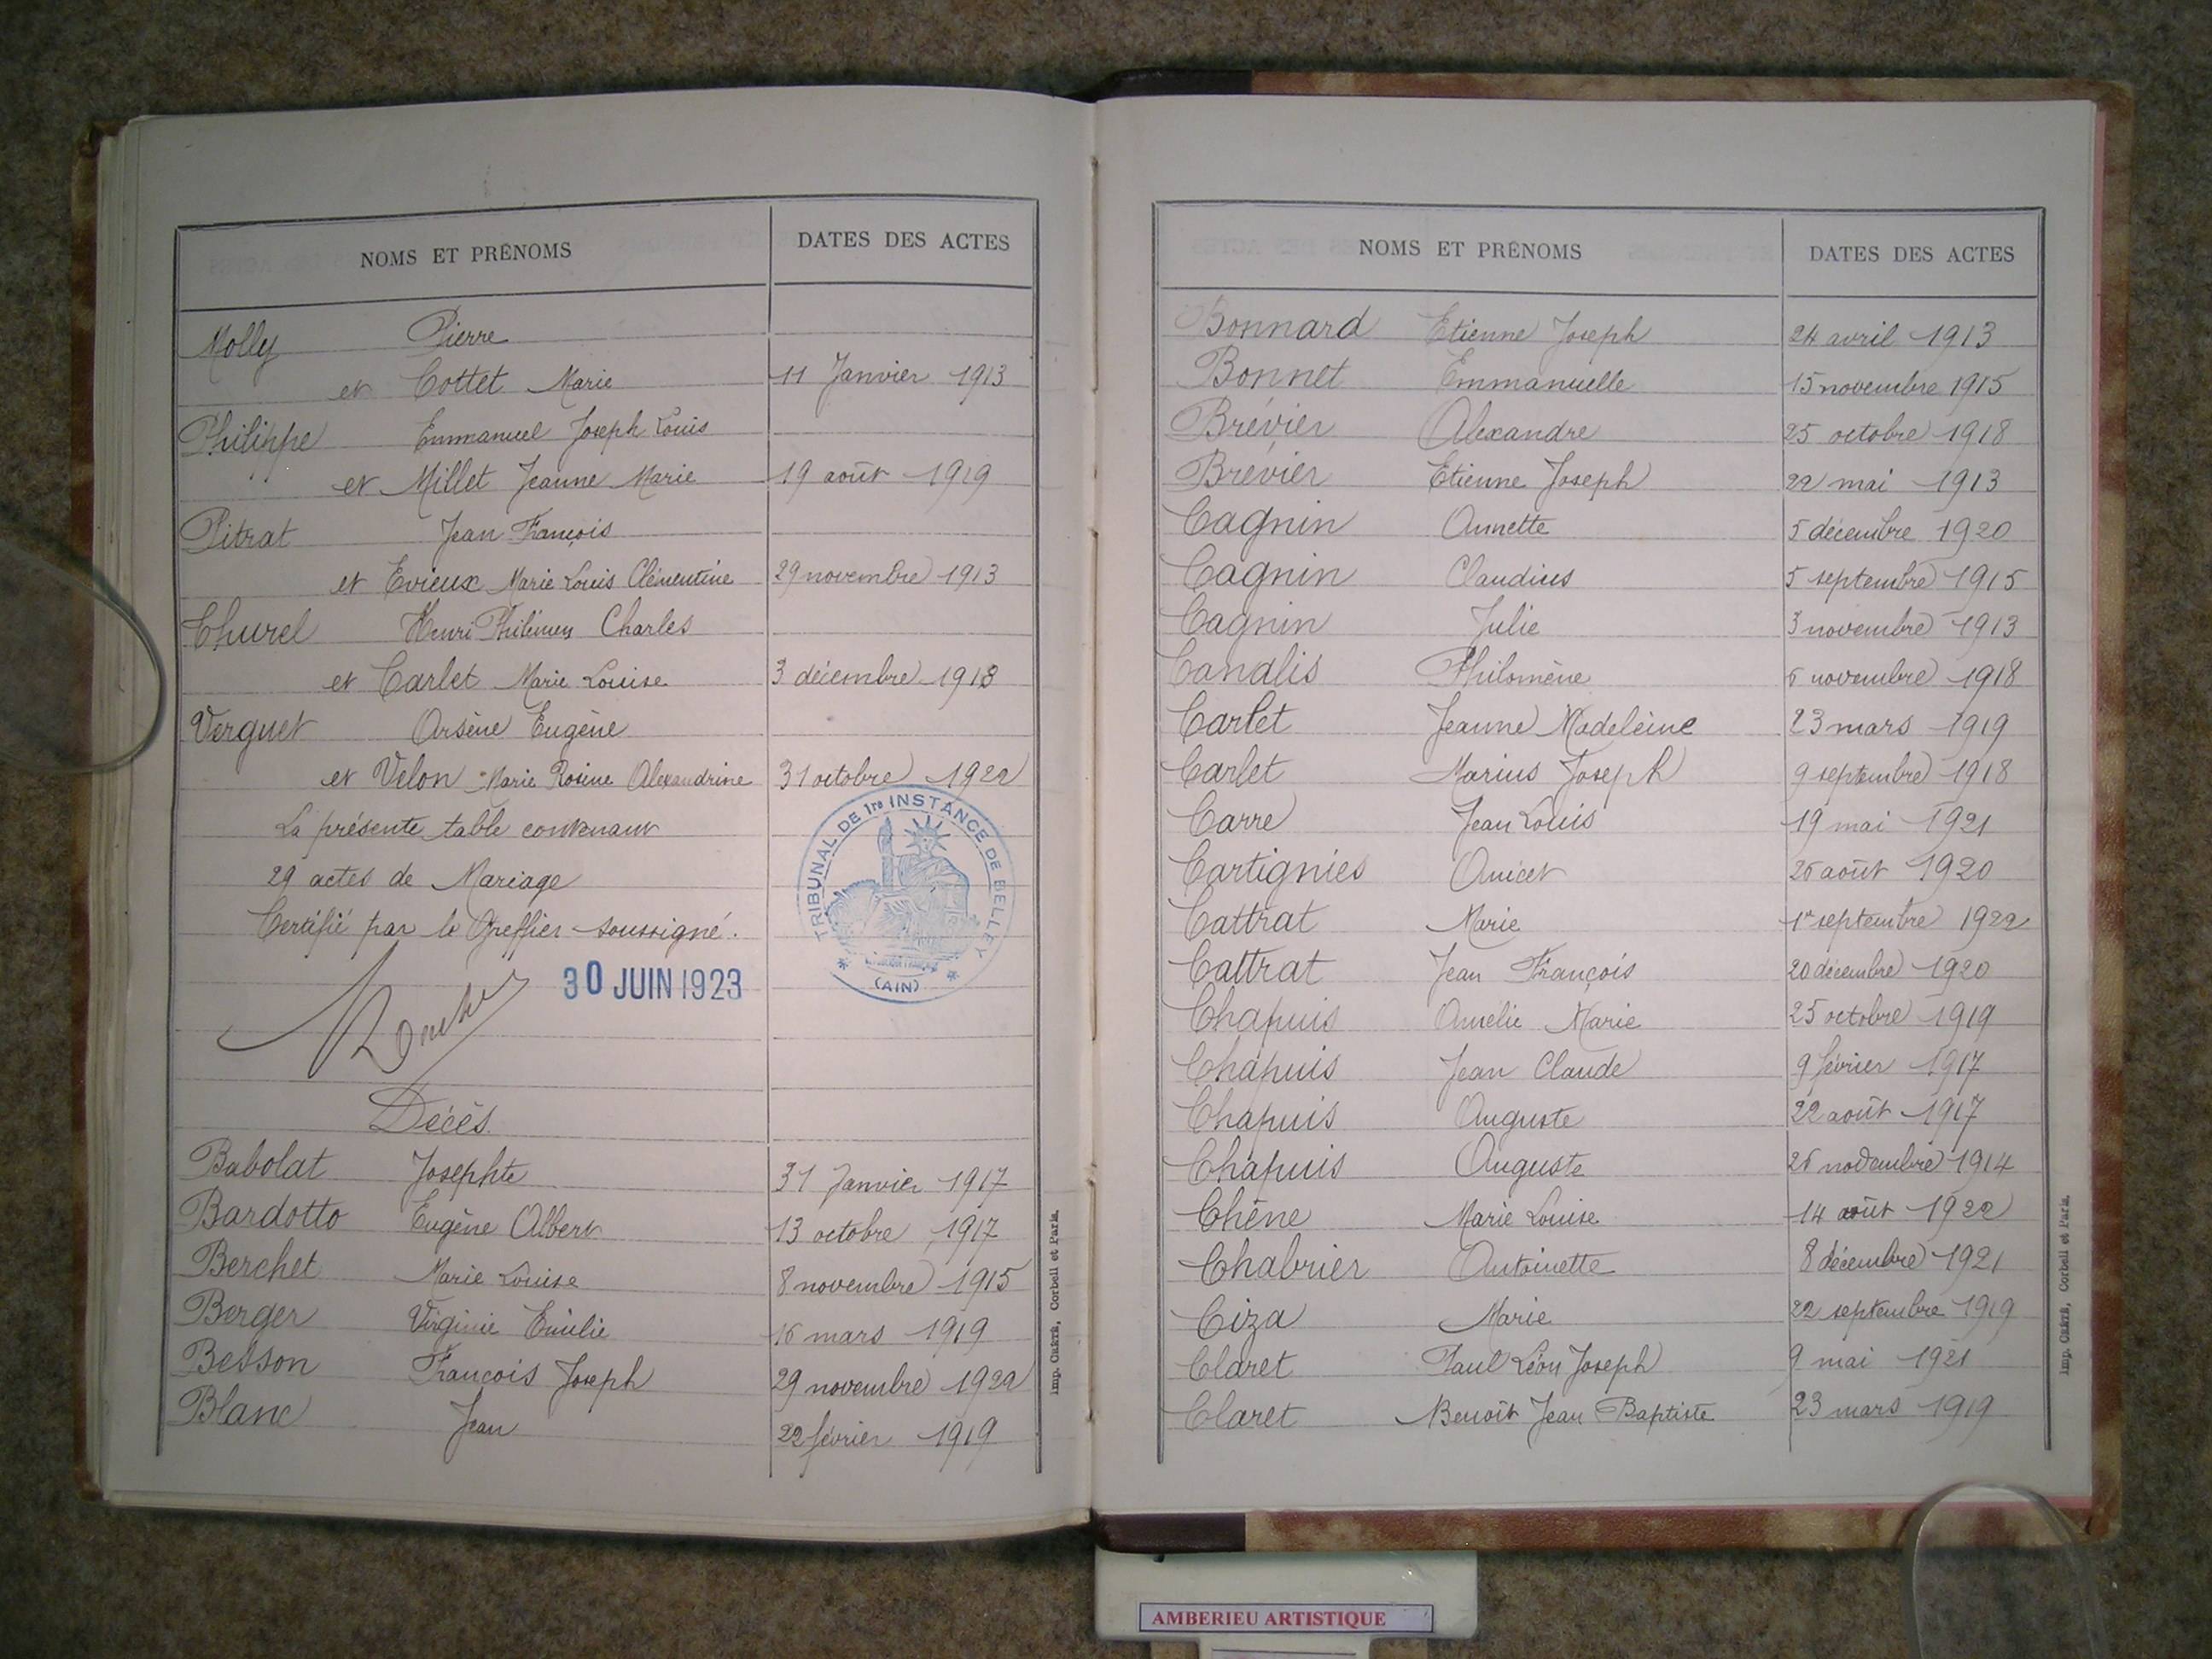 NOMS ET PRÉNOMS DATES DES ACTES
Molly Pierre
et Cottet Marie 11 Janvier 1913
Philippe Emmanuel Joseph Louis
et Millet Jeanne Marie 19 août 1919
Pitrat Jean François
et Evieux Marie Louis Clémentine 29 novembre 1913
Churel Henri Charles
et Carlet Marie Louise 3 décembre
Verguet Arsène Eugène
et Velon Marie Rosine Alexandrine 31 octobre 1922
La présente table contenant
29 actes de Mariage
Certifié par le Greffier soussigné.
30 JUIN 1923
TRIBUNAL DE 1re INSTANCE DE BELLEY
(AIN)
Décès
Babolat Josephte 31 Janvier 1917
Bardotto Eugène Albert 13 octobre 1917
Berchet Marie Louise 8 novembre 1915
Berger Virginie Emilie 16 mars 1919
Besson Francois Joseph 29 novembre 1922
Blanc Jean 22 février 1919
Imp. CRÉTÉ, Corbeil et Paris.
NOMS ET PRÉNOMS DATES DES ACTES
Bonnard Etienne Joseph 24 avril 1913
Bonnet Emmanuelle 15 novembre 1915
Brévier Alexandre 25 octobre 1918
Brévier Etienne Joseph 22 mai 1913
Cagnin Annette 5 décembre 1920
Cagnin Claudius 5 septembre 1915
Cagnin Julie 3 novembre 1913
Canalis Philomène 6 novembre 1918
Carlet Jeanne Madeleine 23 mars 1919
Carlet Marius Joseph 9 septembre 1918
Carre Jean Louis 19 mai 1921
Cartignies Anicet 26 août 1920
Cattrat Marie 1er septembre 1922
Cattrat Jean François 20 décembre 1920
Chapuis Amélie Marie 25 octobre 1919
Chapuis Jean Claude 9 février 1917
Chapuis Auguste 22 août 1917
Chapuis Auguste 26 novembre 1914
Chêne Marie Louise 14 août 1922
Chabrier Antoinette 8 décembre 1921
Ciza Marie 22 septembre 1919
Claret Paul Léon Joseph 9 mai 1921
Claret Benoît Jean Baptiste 23 mars 1919
Imp. CRÉTÉ, Corbeil et Paris.
AMBERIEU ARTISTIQUE